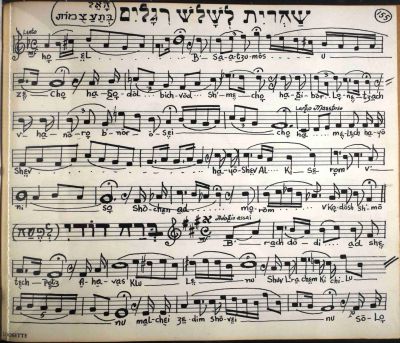 שחרית לשלש רגלים
האל
בתעצמות
Lento
ho EL B Sa-a-tzu-mos u
zę Cho ha-Go-dol bich-vod Sh'-me cho ha-gi-bor Lo-ne-tzach
Largo Maestoso
v' ha-no-ro b'nor o Sei cho ha me-lech ha-yo
Shev ha-yo-Shev AL Ki Se rom v'
ni so Sho-chen ad mo-rom v'Kodosh Sh'mo
(לפסח) ברח דודי Adagio assai
B' rach do-di ad she
tech-potz A-ha-vas Klu Le nu Shuv L'ra chem Ki chi-Lu
nu mal-chei ze-dim Sho-vei nu So-Lo